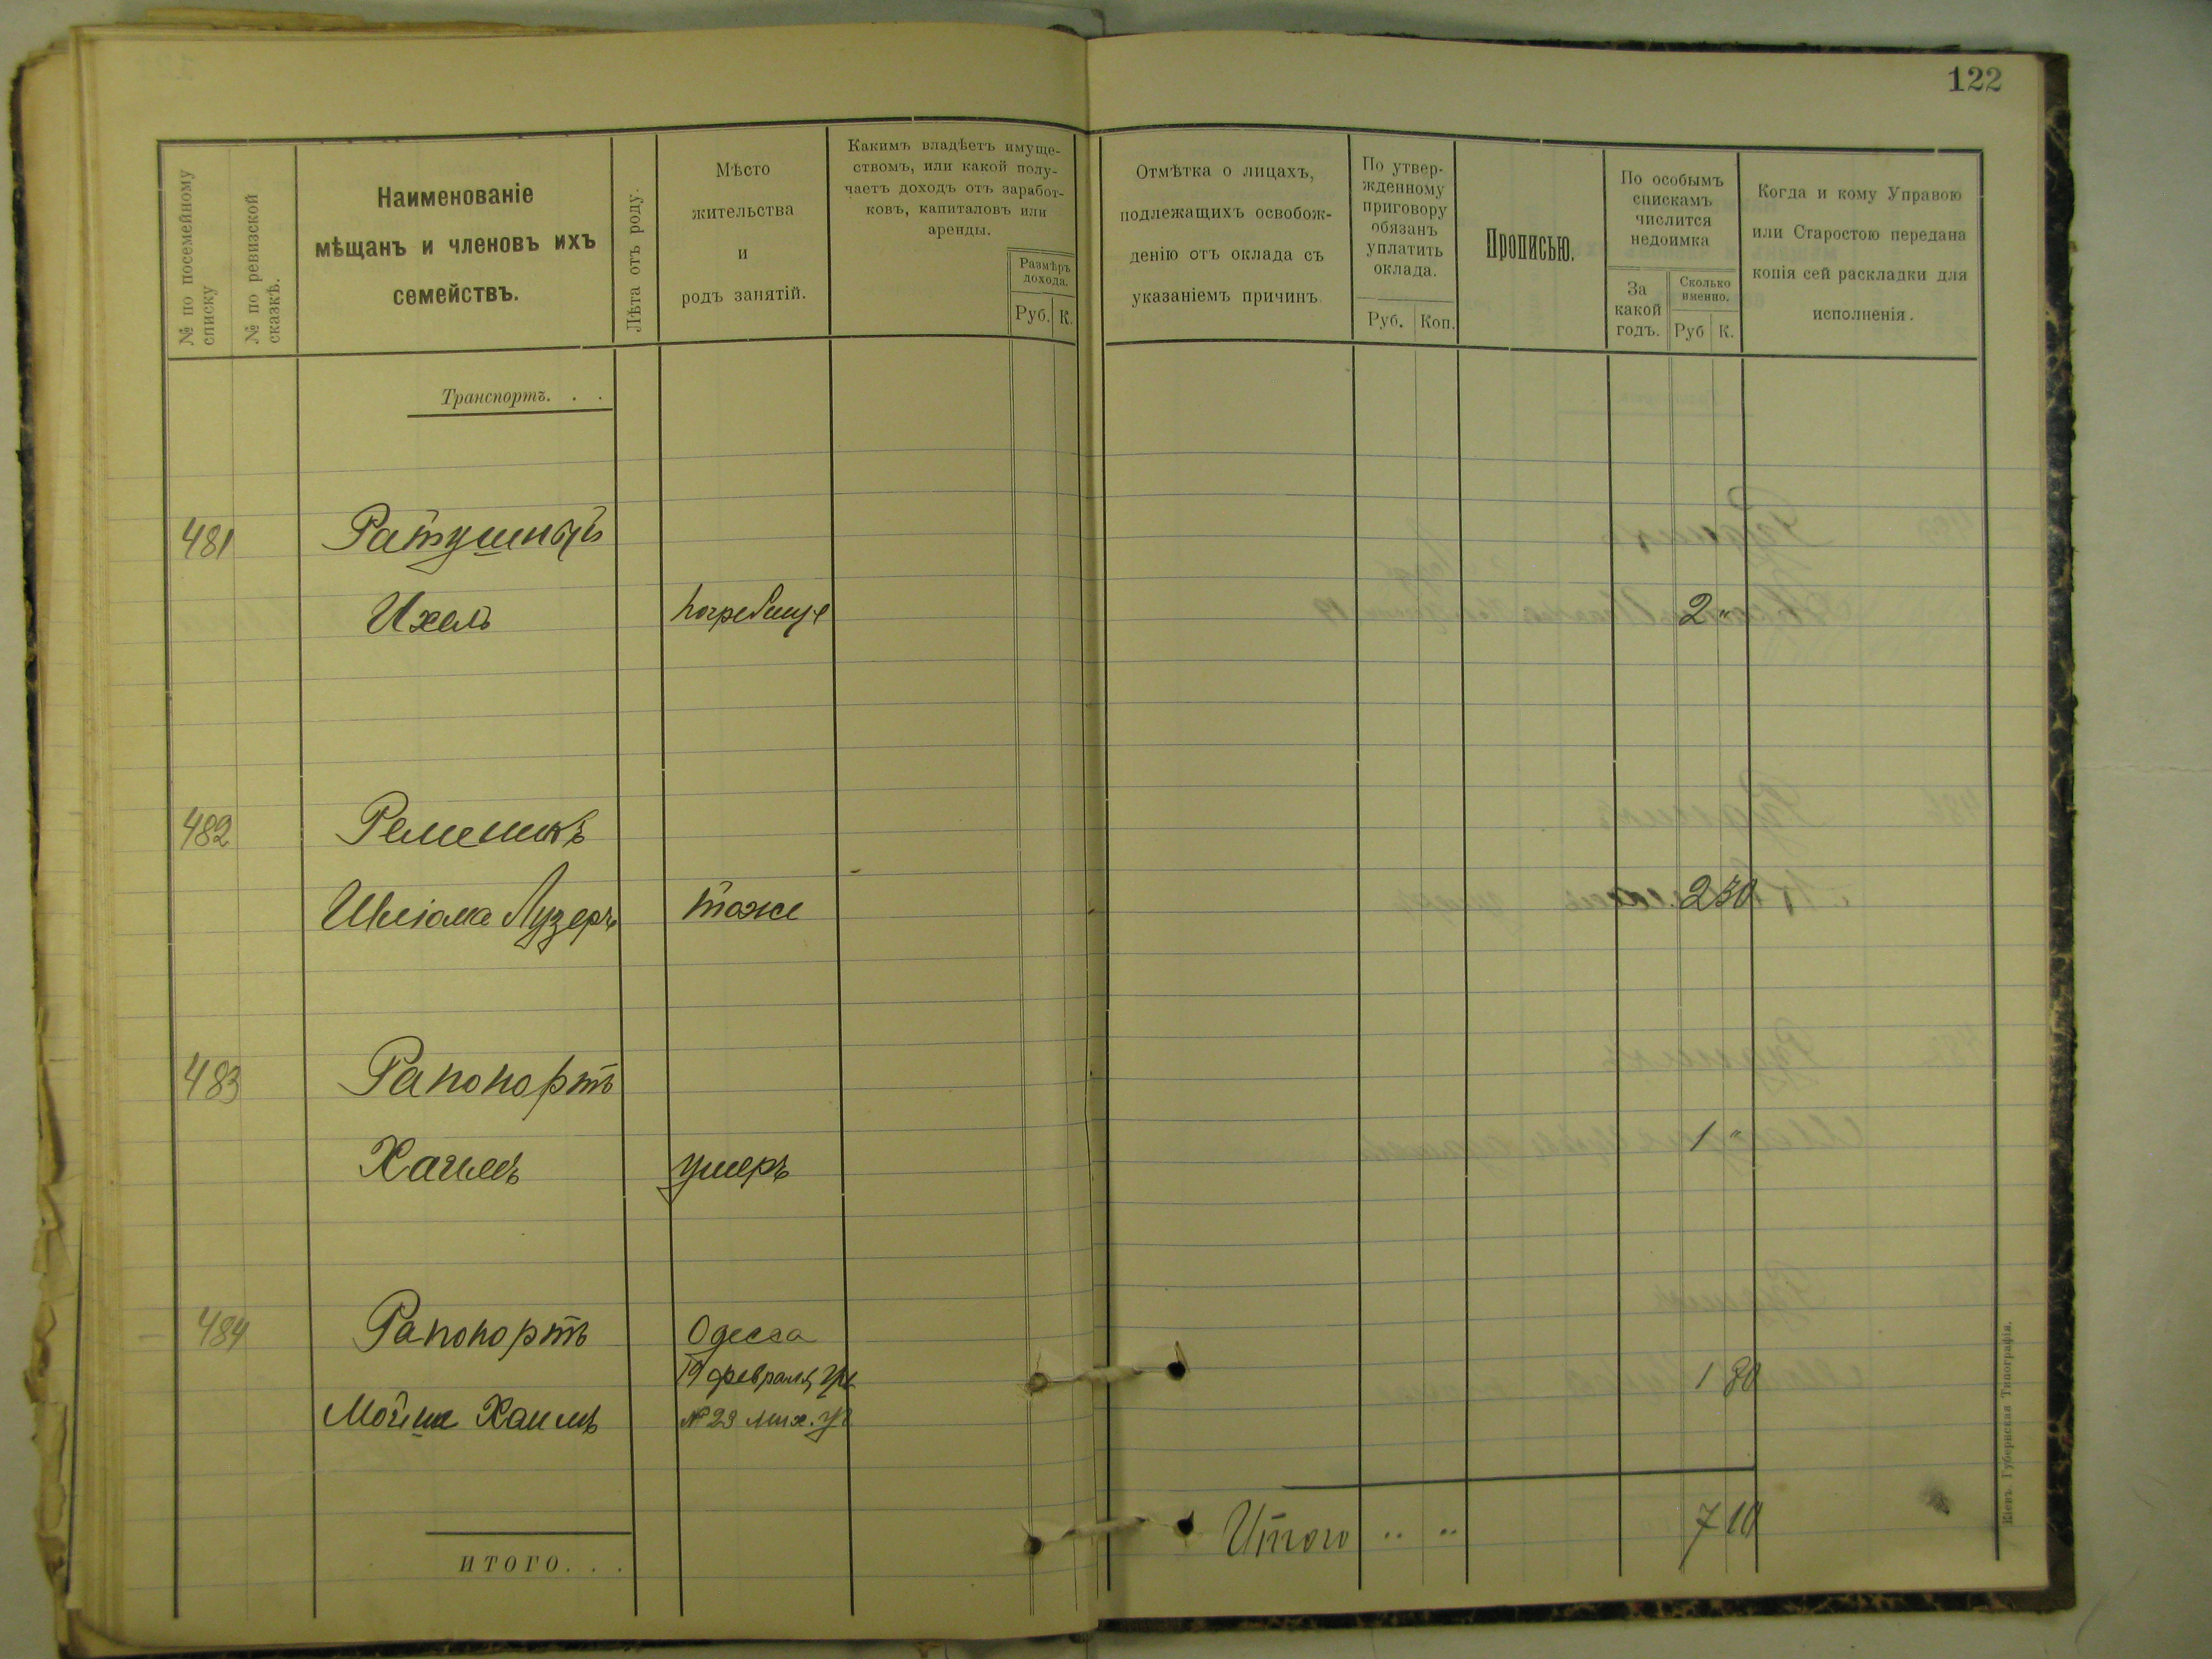 122
№ по посемейному списку
№ по ревизской сказкѣ.
Наименованіе
мѣщанъ и членовъ ихъ
семействъ.
Лѣта отъ роду.
Мѣсто
жительства
и
родъ занятій.
Какимъ владѣетъ имуще-
ствомъ, или какой полу-
чаетъ доходъ отъ заработ-
ковъ, капиталовъ или
аренды.
Размѣръ
дохода.
Руб. К.
Отмѣтка о лицахъ,
подлежащихъ освобож-
денію отъ оклада съ
указаніемъ причинъ
По утвер-
жденному
приговору
обязанъ
уплатить
оклада.
Руб. Коп.
Прописью.
По особымъ
спискамъ
числится
недоимка
За
какой
годъ.
Сколько
именно.
Руб К.
Когда и кому Управою
или Старостою передана
копія сей раскладки для
исполненія.
Транспортъ. . .
481 Ратушный
Ихель Погребище 2 "
482 Ременикъ
Шлiома Лузеръ тоже 2 30
483 Рапопортъ
Хаимъ умеръ 1 "
484 Рапопортъ Одесса
19 февраля, 1 80
Мойше Хаимъ № 23 Мих.
Итого " " 7 10
ИТОГО. . .
Кіевъ. Губернская Типографія.